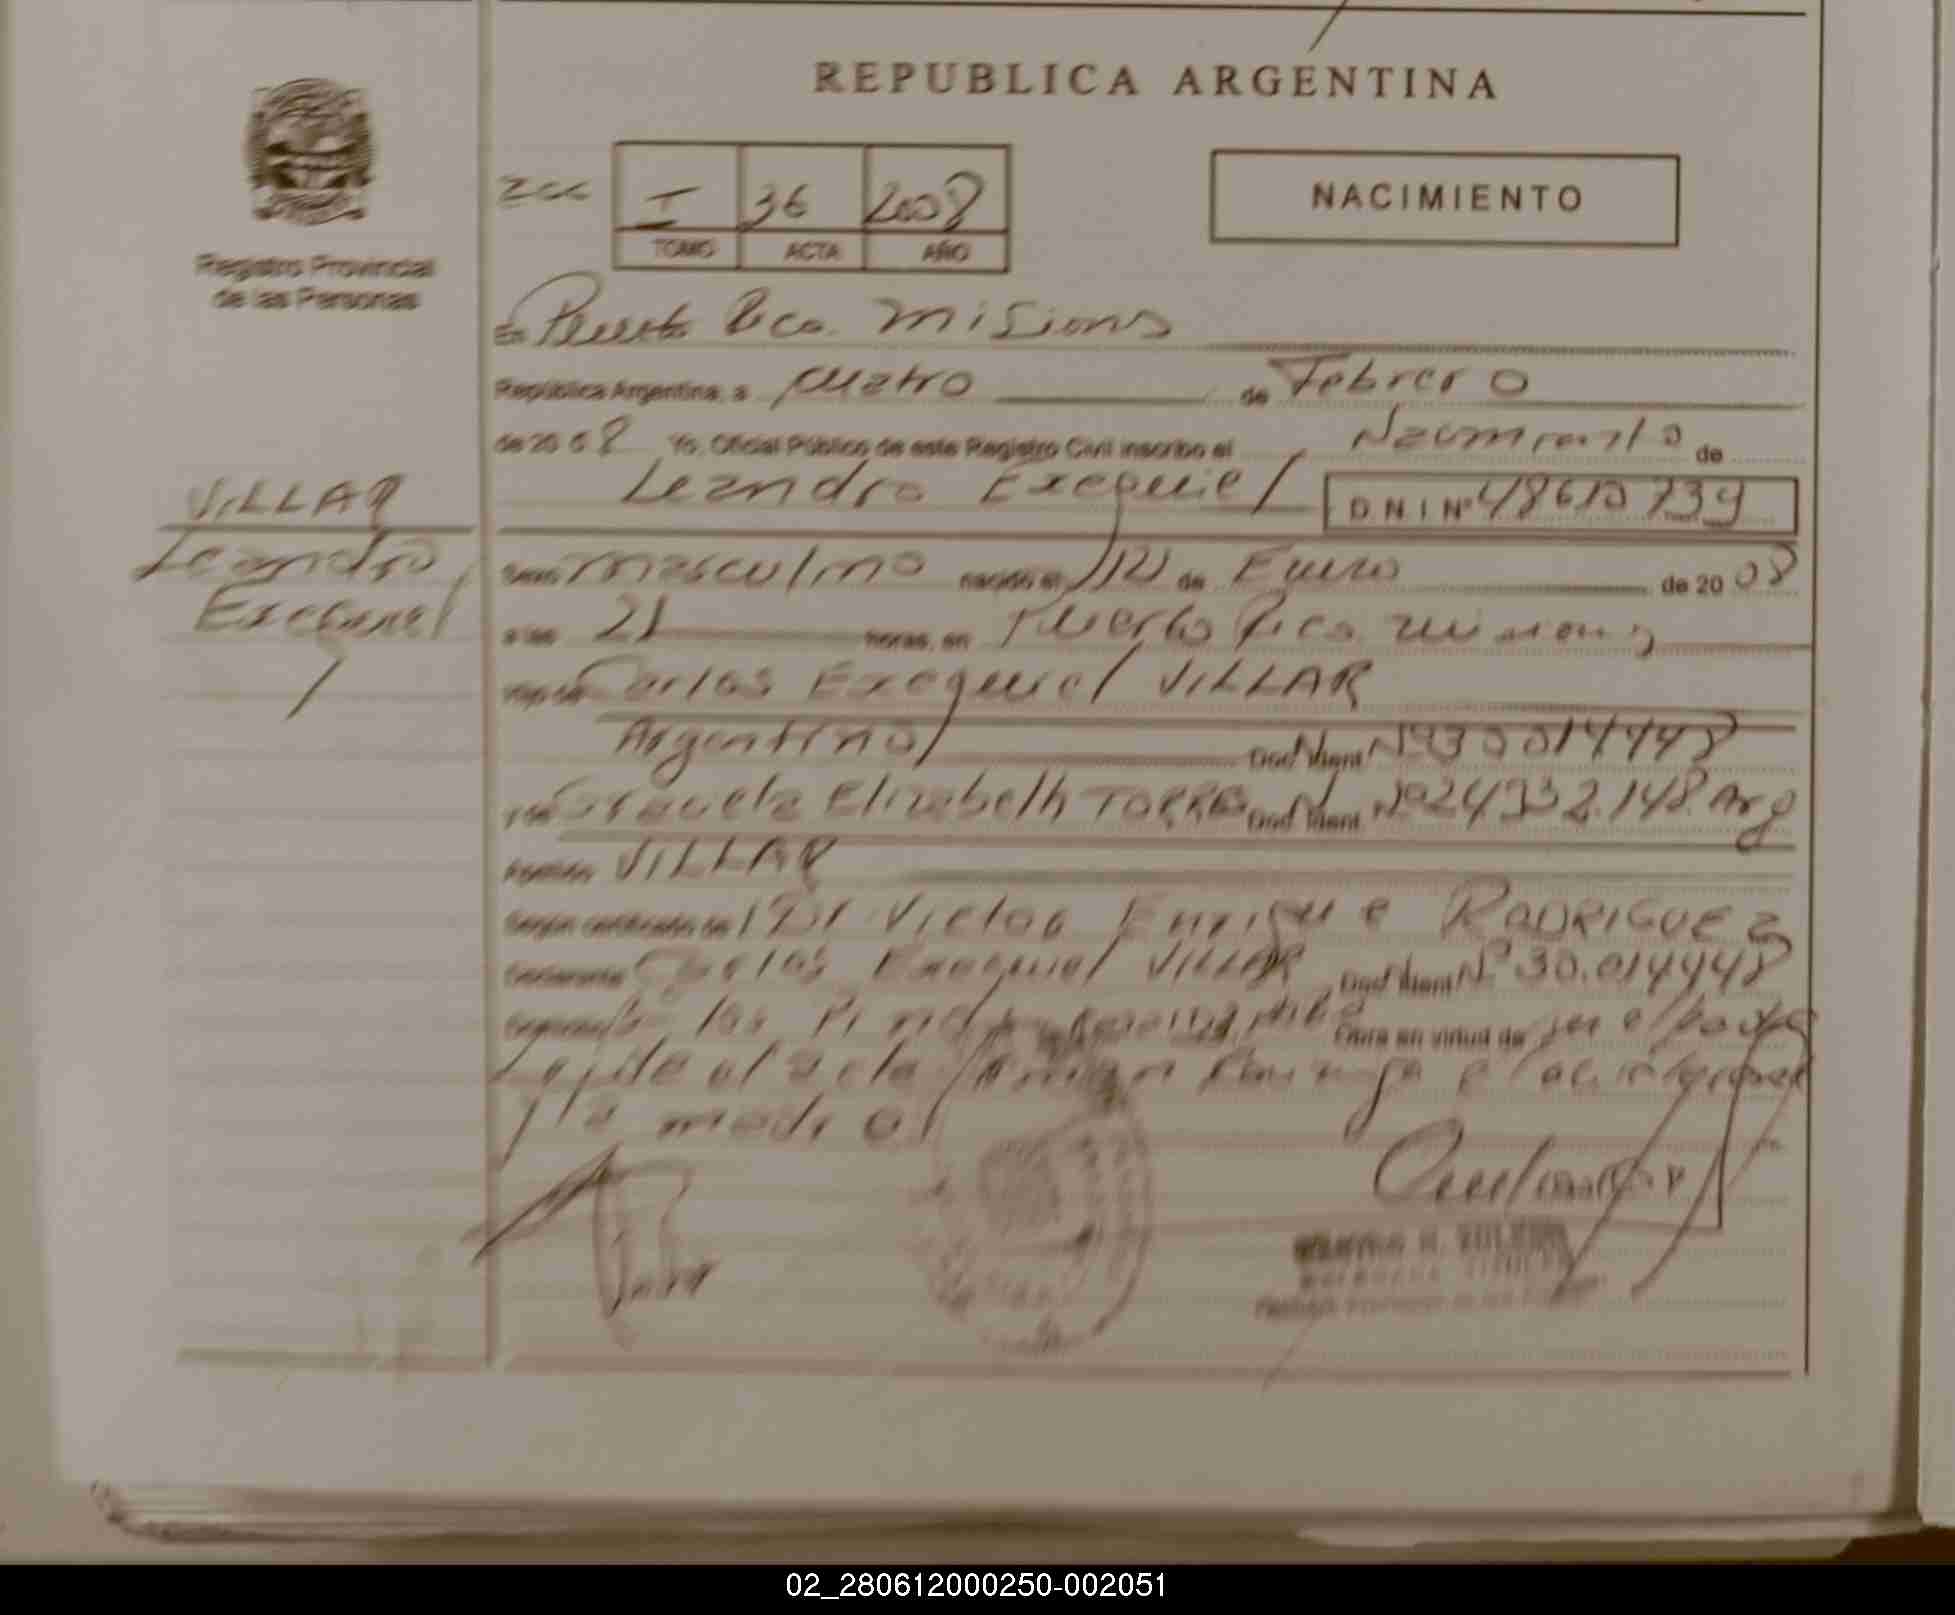 REPUBLICA ARGENTINA
I 36 2008
TOMO ACTA AÑO
NACIMIENTO
Registro Provincial
de las Personas
En Puerto Rico. Misiones
República Argentina, a cuatro de Febrero
de 2008 Yo, Oficial Público de este Registro Civil inscribo el Nacimiento de
Leandro Exequiel D.N.I Nº 48610739
VILLAR
Leandro
Exequiel
Sexo masculino nacido el de Enero de 2008
a las 21 horas, en Puerto Rico. Misiones
Hijo de Carlos Exequiel VILLAR
Argentino Doc. Ident. Nº 30014448
Elizabeth TORRES Doc. Ident. Nº 24332.148. Arg
Apellido VILLAR
Según certificado de Victor Enrique RODRIGUEZ
Declarante Carlos Exequiel VILLAR Doc. Ident. Nº 30.014448
los Obra en virtud de
al acta
y la madre
02_280612000250-002051